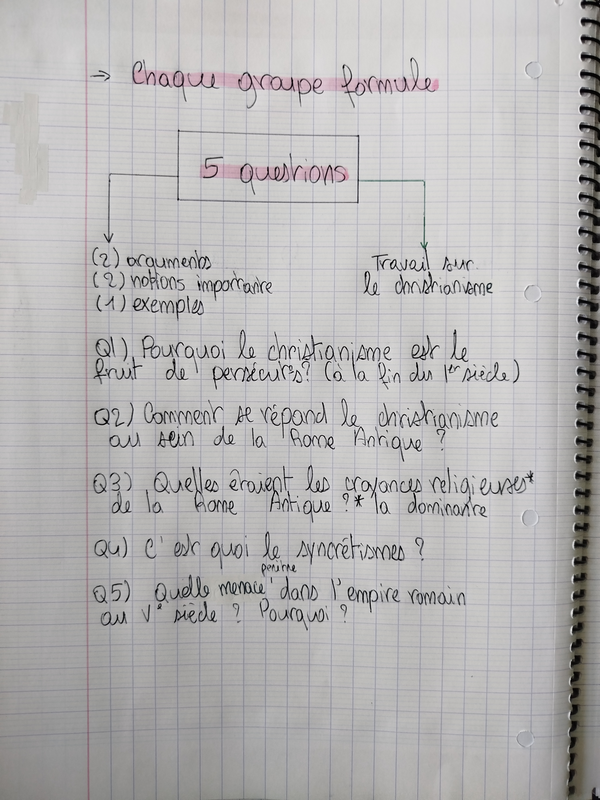 → Chaque groupe formule
5 questions
(2) arguments
(2) notions importante
(1) exemples
Travail sur
le christianisme
Q1) Pourquoi le christianisme est le
fruit de persécut°s? (à la fin du 1er siècle)
Q2) Comment se répond le christianisme
au sein de la Rome Antique ?
Q3) Quelles étaient les croyances religieuses*
de la Rome Antique ?* la dominante
Q4) C'est quoi le syncrétismes ?
Q5) Quelle menace dans l'empire romain
au Ve siècle ? Pourquoi ?